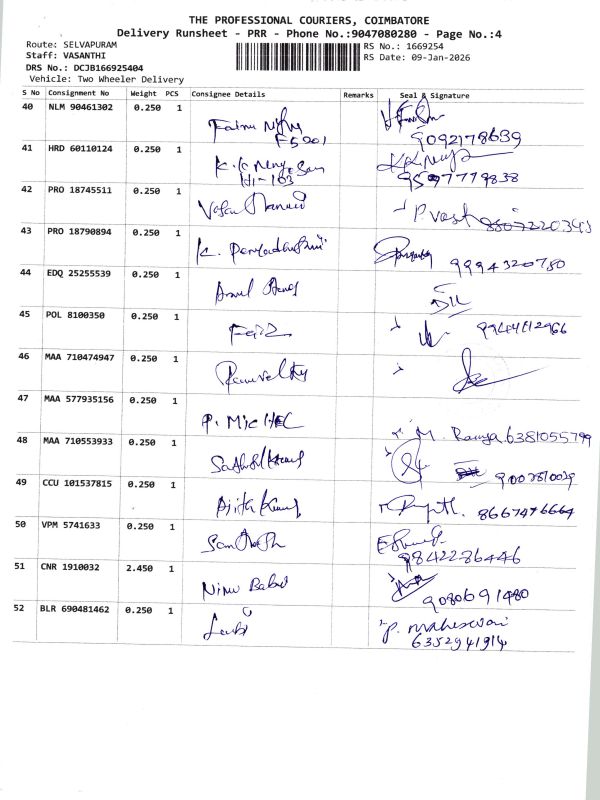 THE PROFESSIONAL COURIERS, COIMBATORE
Delivery Runsheet - PRR - Phone No.:9047080280 - Page No.:4
Route: SELVAPURAM
RS No.: 1669254
Staff: VASANTHI
RS Date: 09-Jan-2026
DRS No.: DCJB166925404
Vehicle: Two Wheeler Delivery
S No Consignment No Weight PCS Consignee Details Remarks Seal & Signature
40 NLM 90461302 0.250 1
F5201 9092178639
41 HRD 60110124 0.250 1
H1-103 9597779838
42 PRO 18745511 0.250 1
43 PRO 18790894 0.250 1 K.
9994320780
44 EDQ 25255539 0.250 1
45 POL 8100350 0.250 1
46 MAA 710474947 0.250 1
47 MAA 577935156 0.250 1 P.
M. Ramya 6381055799
48 MAA 710553933 0.250 1
49 CCU 101537815 0.250 1 Ajith Kumar
8667476664
50 VPM 5741633 0.250 1 Santhosh
9842286446
51 CNR 1910032 2.450 1 Ninu Babu
9080691480
52 BLR 690481462 0.250 1
P. maheswari
6352941914